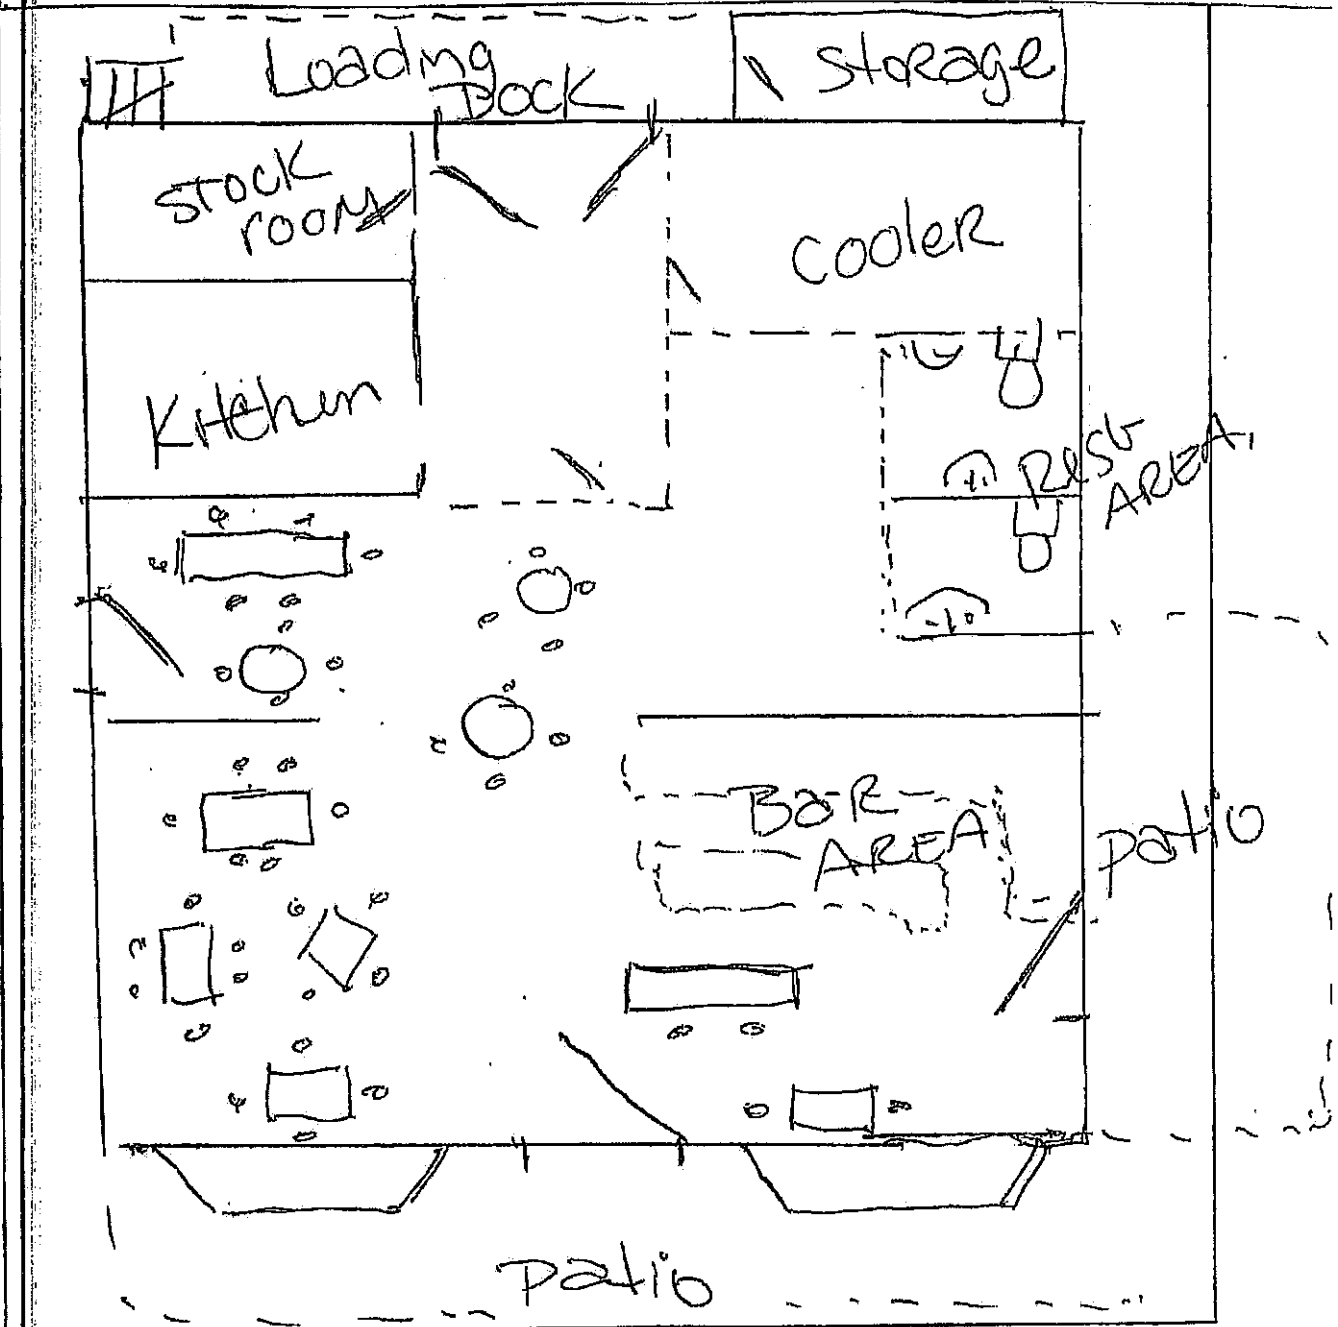 Loading
Dock
Storage
Stock
room
Cooler
Kitchen
Rest
AREA
BaR
AREA
patio
patio